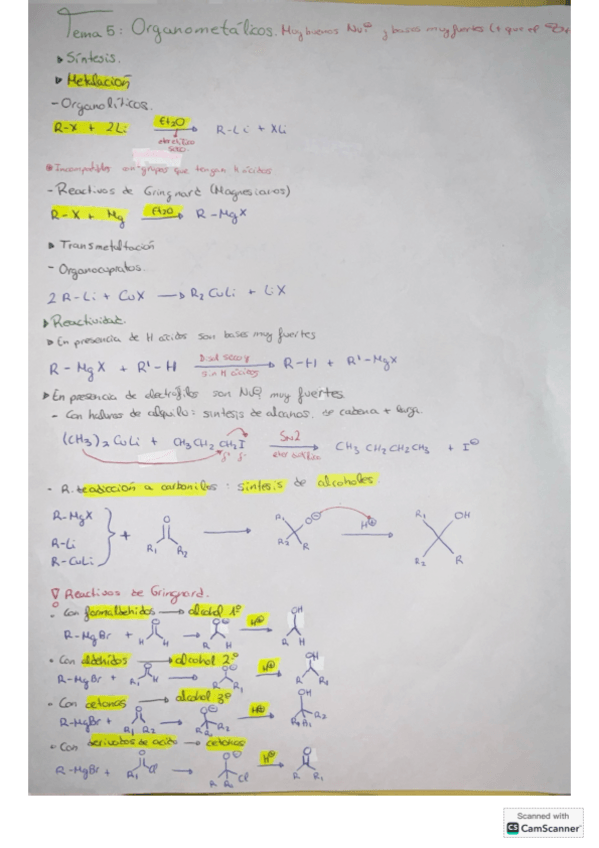 Tema 5: Organometálicos. Muy buenos Nu⊖ y bases muy fuertes (+ que el
▸ Síntesis.
▸ Metalación
- Organolíticos.
R-X + 2Li —Et₂O→ R-Li + XLi
éter etílico seco
* Incompatibles con grupos que tengan H ácidos
- Reactivos de Gringnard (Magnesianos)
R-X + Mg —Et₂O→ R-MgX
▸ Transmetaltación
- Organocupratos.
2 R-Li + CuX → R₂CuLi + LiX
▸ Reactividad.
▸ En presencia de H ácidos son bases muy fuertes
R-MgX + R'-H —sin H ácidos→ R-H + R'-MgX
▸ En presencia de electrófilos son Nu⊖ muy fuertes
- Con haluros de alquilo: síntesis de alcanos de cadena + larga
(CH₃)₂CuLi + CH₃CH₂CH₂I —SN2→ CH₃CH₂CH₂CH₃ + I⊖
δ⁺ δ⁻ éter etílico
- R. de adicción a carbonilos: síntesis de alcoholes.
R-MgX
R-Li
R-CuLi
+ O R₁ R₂ → R₁ O⊖ R₂ R —H⊕→ R₁ OH R₂ R
Reactivos de Gringnard.
· Con formaldehidos → alcohol 1º
R-MgBr + O H H → O⊖ R H —H⊕→ OH R H
· Con aldehidos → alcohol 2º
R-MgBr + O R₁ H → O⊖ R R₁ —H⊕→ OH R R₁
· Con cetonas → alcohol 3º
R-MgBr + O R₁ R₂ → O⊖ R R₁ R₂ —H⊕→ OH R R₁ R₂
· Con derivados de ácido → cetonas
R-MgBr + O R₁ Cl → O⊖ R R₁ Cl —H⊕→ O R R₁
Scanned with
CS CamScanner